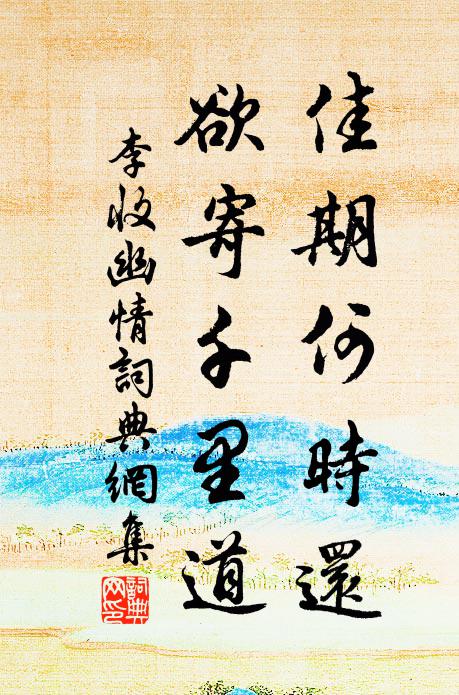 佳期何時還
欲寄千里道
李收幽情詞典網集
詞典